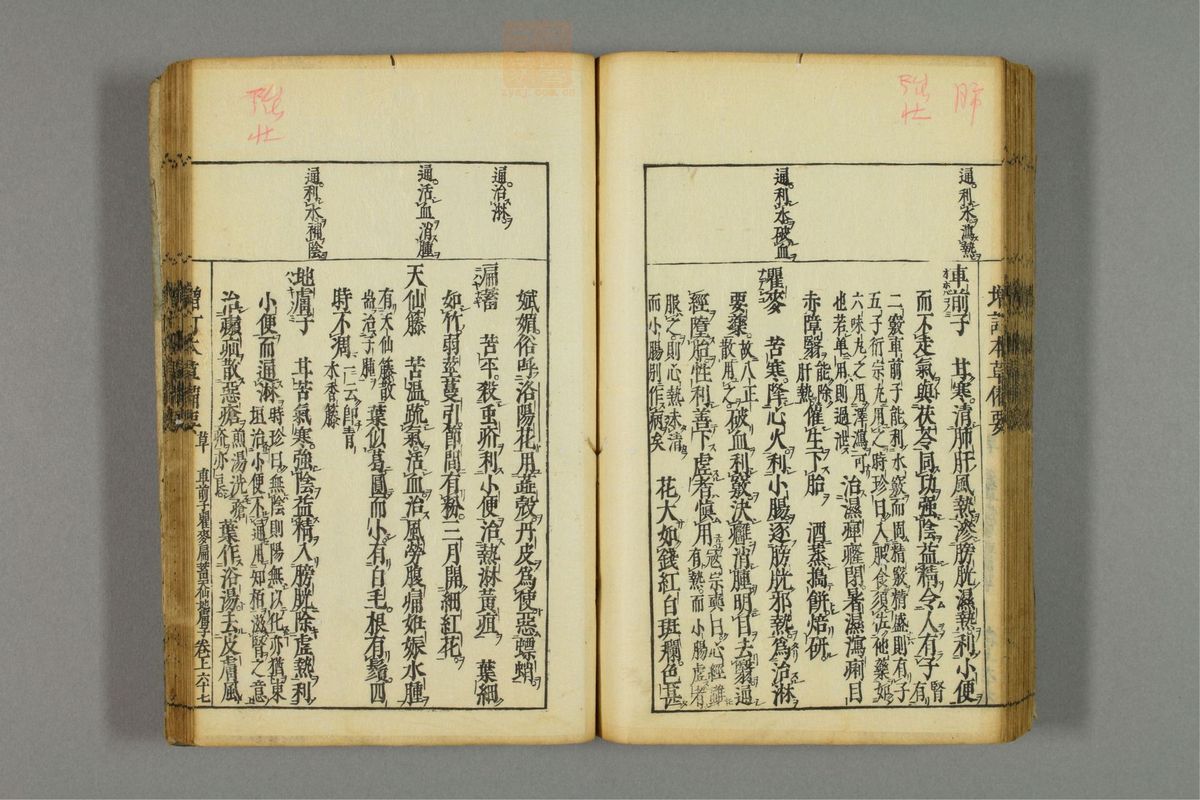 肺
強
壯
增訂本草備要
通利水瀉熱
車前子　甘寒清肺肝風熱滲膀胱濕熱利小便
而不走氣與茯苓同功強陰益精令人有子腎有
二竅車前子能利水竅而固精竅精盛則有子
五子衍宗丸用之時珍曰入服食須佐他藥如
六味丸之用澤瀉可
也若單用則過泄　治濕痺癃閉暑濕瀉痢目
赤障翳能除肝熱催生下胎　酒蒸搗餅焙研
通利水破血
瞿麥　苦寒降心火利小腸逐膀胱邪熱為治淋
要藥故八正散用之破血利竅決癰消腫明目去翳通
經墮胎性利善下虛者慎用寇宗奭曰心經雖有熱而小腸虛者
服之則心熱未清
而小腸別作病矣　花大如錢紅白斑斕色甚
通治淋
嫵媚俗呼洛陽花用蕊殼丹皮為使惡螵蛸
萹蓄　苦平殺蟲疥利小便治熱淋黃疸　葉細
如竹弱莖蔓引節間有粉三月開細紅花
通活血消腫
天仙藤　苦溫疏氣活血治風勞腹痛妊娠水腫
有天仙藤散
耑治子腫　葉似葛圓而小有白毛根有鬚四
時不凋一云即青木香藤
通利水補陰
地膚子　甘苦氣寒強陰益精入膀胱除虛熱利
小便而通淋時珍曰無陰則陽無以化亦猶東垣治小便不通用知柏滋腎之意
治㿗疝散惡瘡煎湯洗瘡疥亦良　葉作浴湯去皮膚風
增訂本草備要　草　車前子瞿麥萹蓄天仙地膚子　卷上　六十七
強
壯